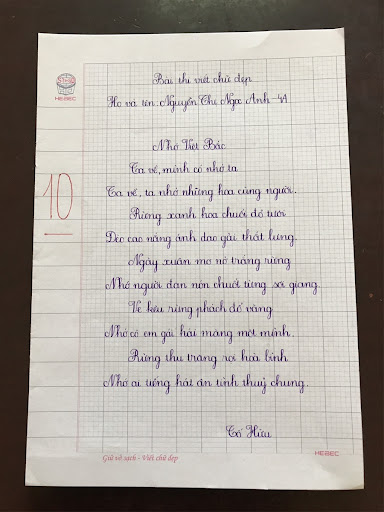 Bài thi viết chữ đẹp
Họ và tên Nguyễn Thị Ngọc Anh - 4A
HEBEC
Nhớ Việt Bắc
Ta về, mình có nhớ ta
Ta về, ta nhớ những hoa cùng người.
10
Rừng xanh hoa chuối đỏ tươi
Đèo cao nắng ánh dao gài thắt lưng.
Ngày xuân mơ nở trắng rừng
Nhớ người đan nón chuốt từng sợi giang.
Ve kêu rừng phách đổ vàng
Nhớ cô em gái hái măng một mình.
Rừng thu trăng rọi hoà bình
Nhớ ai tiếng hát ân tình thuỷ chung.
Tố Hữu
Giữ vở sạch - Viết chữ đẹp
HEBEC